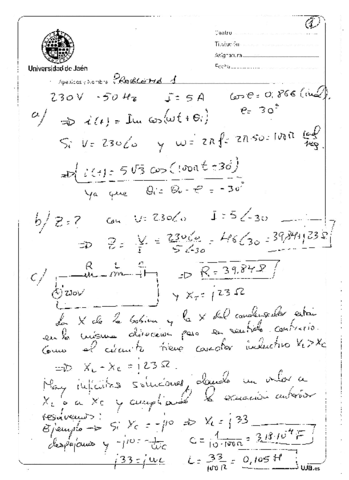 ①
Centro
Titulación
Asignatura
Fecha
Universidad de Jaén
Apellidos y Nombre: PROBLEMA 1
230V - 50Hz I = 5A cos φ = 0,866 (ind).
φ = 30°
a) ⇒ i(t) = Im cos(ωt + θi)
Si V = 230∠0 y ω = 2πf = 2π50 = 100π rad/seg
⇒ i(t) = 5√3 cos(100πt - 30°)
Ya que θi = θv - φ = -30°
b) Z = ? con V = 230∠0 I = 5∠-30
⇒ Z = V/I = 230∠0 / 5∠-30 = 46∠30 = 39,84+j23Ω
c) R L C ⇒ R = 39,84Ω
230V y XT = j23Ω
La X de la bobina y la X del condensador están
en la misma dirección pero en sentido contrario.
Como el circuito tiene carácter inductivo XL > XC
⇒ XL - XC = j23Ω
Hay infinitas soluciones, dando un valor a
XL o a XC y cumpliendo la ecuación anterior
resolvemos:
Ejemplo → Si XC = -j10 ⇒ XL = j33
despejamos y -j10 = -1/ωC C = 1/10·100π = 3,18·10⁻⁴ F
j33 = jωL L = 33/100π = 0,105 H